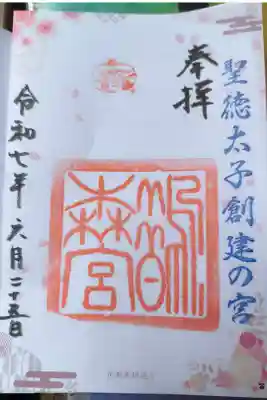 聖徳太子創建の宮
奉拝
鵲
森宮
令和七年六月二十五日